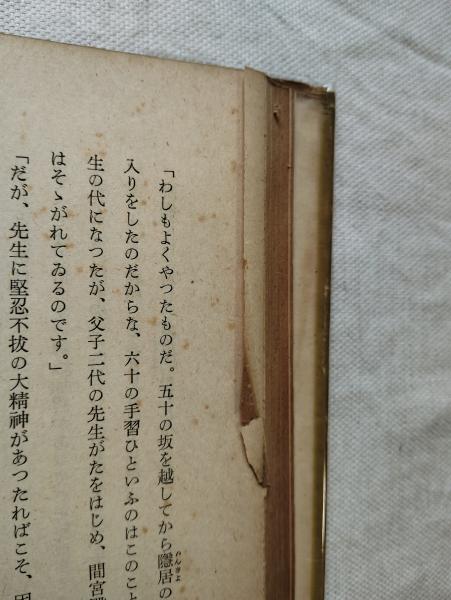 「わしもよくやつたものだ。五十の坂を越してから隱居の
いんきよ
入りをしたのだからな、六十の手習ひといふのはこのこと
生の代になつたが、父子二代の先生がたをはじめ、間宮
はそゝがれてゐるのです。」
「だが、先生に堅忍不抜の大精神があつたればこそ、